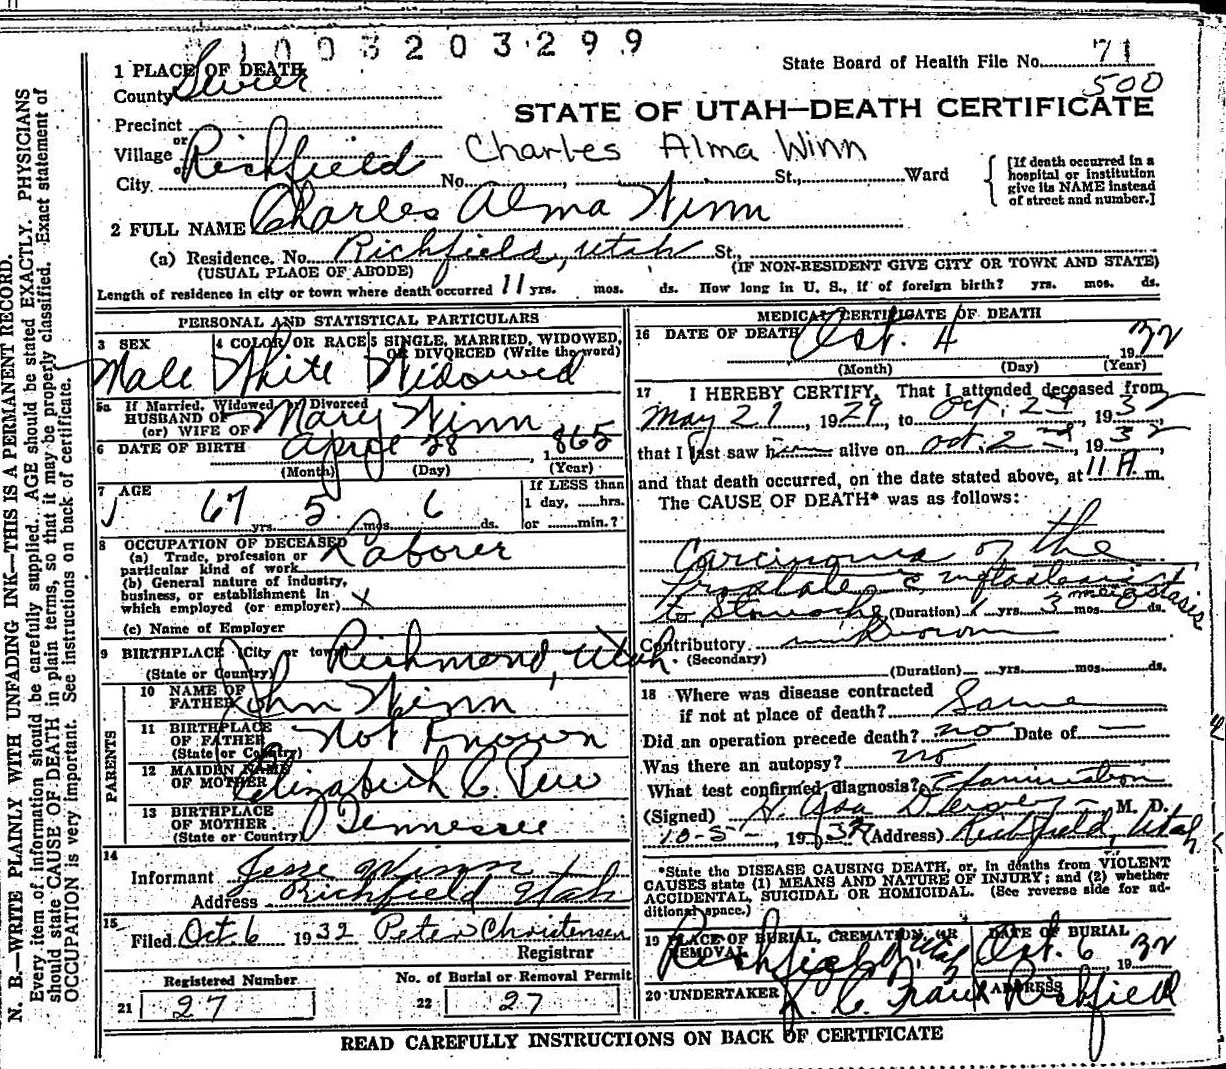 1003203299
State Board of Health File No. 71
500
1 PLACE OF DEATH
County Sevier
STATE OF UTAH—DEATH CERTIFICATE
Precinct
or
Village
Charles Alma Winn
or
City Richfield No. , St., Ward
[If death occurred in a
hospital or institution
give its NAME instead
of street and number.]
2 FULL NAME Charles Alma Winn
(a) Residence. No. Richfield, Utah St.,
(USUAL PLACE OF ABODE) (IF NON-RESIDENT GIVE CITY OR TOWN AND STATE)
Length of residence in city or town where death occurred 11 yrs. mos. ds. How long in U. S., if of foreign birth? yrs. mos. ds.
PERSONAL AND STATISTICAL PARTICULARS
3 SEX 4 COLOR OR RACE 5 SINGLE, MARRIED, WIDOWED,
OR DIVORCED (Write the word)
Male White Widowed
5a If Married, Widowed Divorced
HUSBAND OF
(or) WIFE OF Mary Winn
6 DATE OF BIRTH April 28 1865
(Month) (Day) (Year)
7 AGE
67 yrs. 5 mos. 6 ds.
If LESS than
1 day, ......hrs.
or ......min.?
8 OCCUPATION OF DECEASED
(a) Trade, profession or
particular kind of work Laborer
(b) General nature of industry,
business, or establishment in
which employed (or employer) x
(c) Name of Employer
9 BIRTHPLACE (City or town) Richmond, Utah
(State or Country)
PARENTS
10 NAME OF
FATHER John Winn
11 BIRTHPLACE
OF FATHER Not Known
(State or Country)
12 MAIDEN NAME
OF MOTHER Elizabeth C.
13 BIRTHPLACE
OF MOTHER Tennessee
(State or Country)
14
Informant Jesse Winn
Address Richfield Utah
15
Filed Oct. 6 1932 Peter Christensen
Registrar
Registered Number No. of Burial or Removal Permit
21 27 22 27
MEDICAL CERTIFICATE OF DEATH
16 DATE OF DEATH Oct. 4 1932
(Month) (Day) (Year)
17 I HEREBY CERTIFY, That I attended deceased from
May 21, 1929, to Oct. 2nd 1932
that I last saw him alive on Oct. 2nd, 1932,
and that death occurred, on the date stated above, at 11 A. m.
The CAUSE OF DEATH* was as follows:
Carcinoma of the
Prostate c
metastasis
to stomach (Duration) 1 yrs. 3 mos. ds.
Contributory unknown
(Secondary)
(Duration) yrs. mos. ds.
18 Where was disease contracted
if not at place of death? Same
Did an operation precede death? no Date of —
Was there an autopsy? no
What test confirmed diagnosis? Examination
(Signed) H. Asa M. D.
10-5-, 1932 (Address) Richfield, Utah.
*State the DISEASE CAUSING DEATH, or, in deaths from VIOLENT
CAUSES state (1) MEANS AND NATURE OF INJURY; and (2) whether
ACCIDENTAL, SUICIDAL OR HOMICIDAL. (See reverse side for ad-
ditional space.)
19 PLACE OF BURIAL, CREMATION, OR
REMOVAL
Richfield Utah
DATE OF BURIAL
Oct. 6 1932
20 UNDERTAKER ADDRESS
C. Frank Richfield
READ CAREFULLY INSTRUCTIONS ON BACK OF CERTIFICATE
N. B.—WRITE PLAINLY WITH UNFADING INK—THIS IS A PERMANENT RECORD.
Every item of information should be carefully supplied. AGE should be stated EXACTLY. PHYSICIANS
should state CAUSE OF DEATH in plain terms, so that it may be properly classified. Exact statement of
OCCUPATION is very important. See instructions on back of certificate.